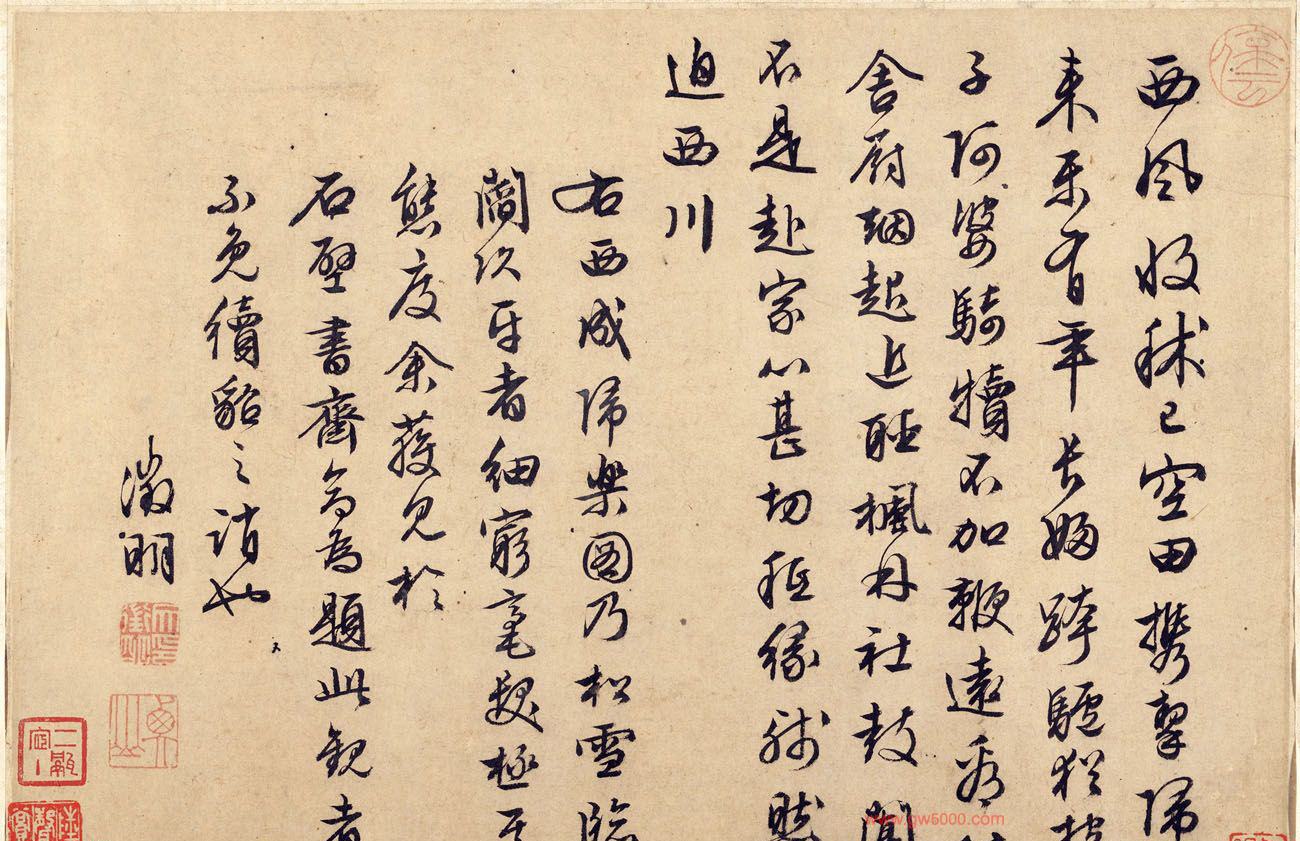 西风收秫已空田携挈归
来乐有年长妇跨驴犹抱
子阿婆骑犊不加鞭远看
舍厨烟起近听枫林社鼓闻
不是赴家心甚切秖缘
迫西川
右西成归乐图乃松雪临
阎次平者细穷毫发极其
态度余获见于
石壁书斋命为题此观者
不免续貂之诮也
徵明
www.gw5000.com